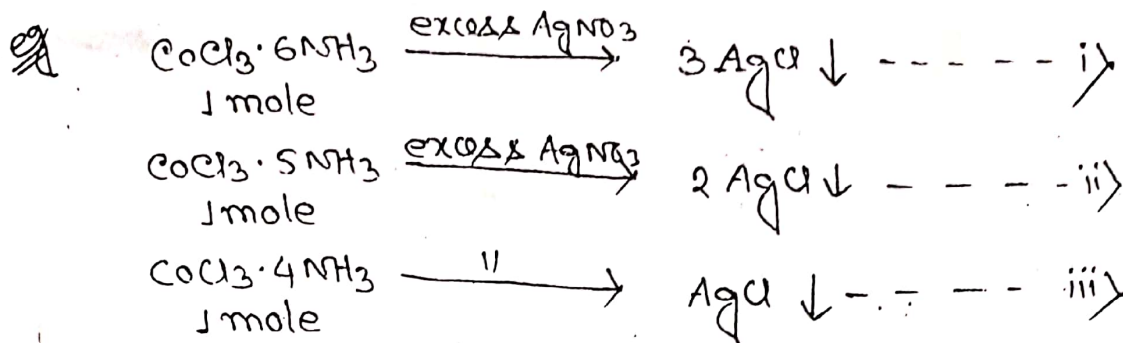 eg CoCl3·6NH3 excess AgNO3 → 3 AgCl ↓ - - - - - i>
1 mole
CoCl3·5NH3 excess AgNO3 → 2 AgCl ↓ - - - - ii>
1 mole
CoCl3·4NH3 " → AgCl ↓ - - - - iii>
1 mole